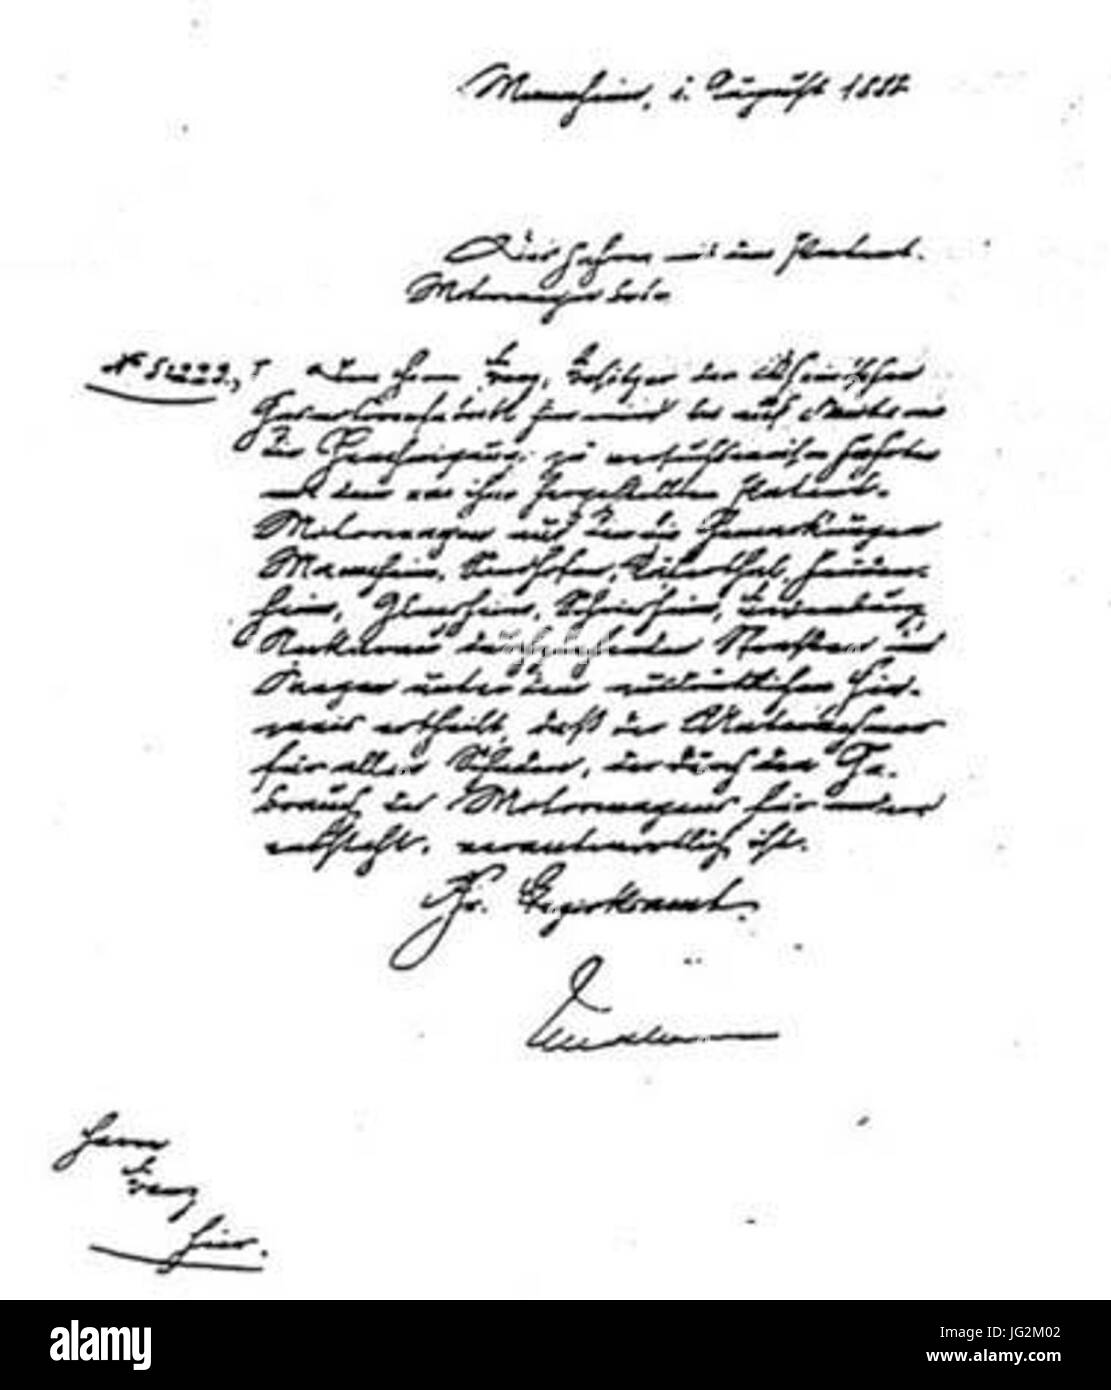 Mannheim, 1. August 1888
Das Fahren mit dem Patent-
Motorwagen betr.
No 51222, I Dem Herrn Benz, Besitzer der Rheinischen
Gasmotorenfabrik hier wird bis auf Weiteres
die Genehmigung zu versuchsweisen Fahrten
mit dem von ihm hergestellten Patent-
Motorwagen auf den die Gemarkungen
Mannheim, Sandhofen, Käferthal, Feuden-
heim, Ilvesheim, Schriesheim, Ladenburg,
Neckarau durchziehenden Straßen und
Wegen unter dem ausdrücklichen Hin-
weis ertheilt, daß der Unternehmer
für allen Schaden, der durch den Ge-
brauch des Motorwagens für andere
entsteht, verantwortlich ist.
Gr. Bezirksamt.
Herrn
Benz
hier.
alamy
alamy
Image ID: JG2M02
www.alamy.com